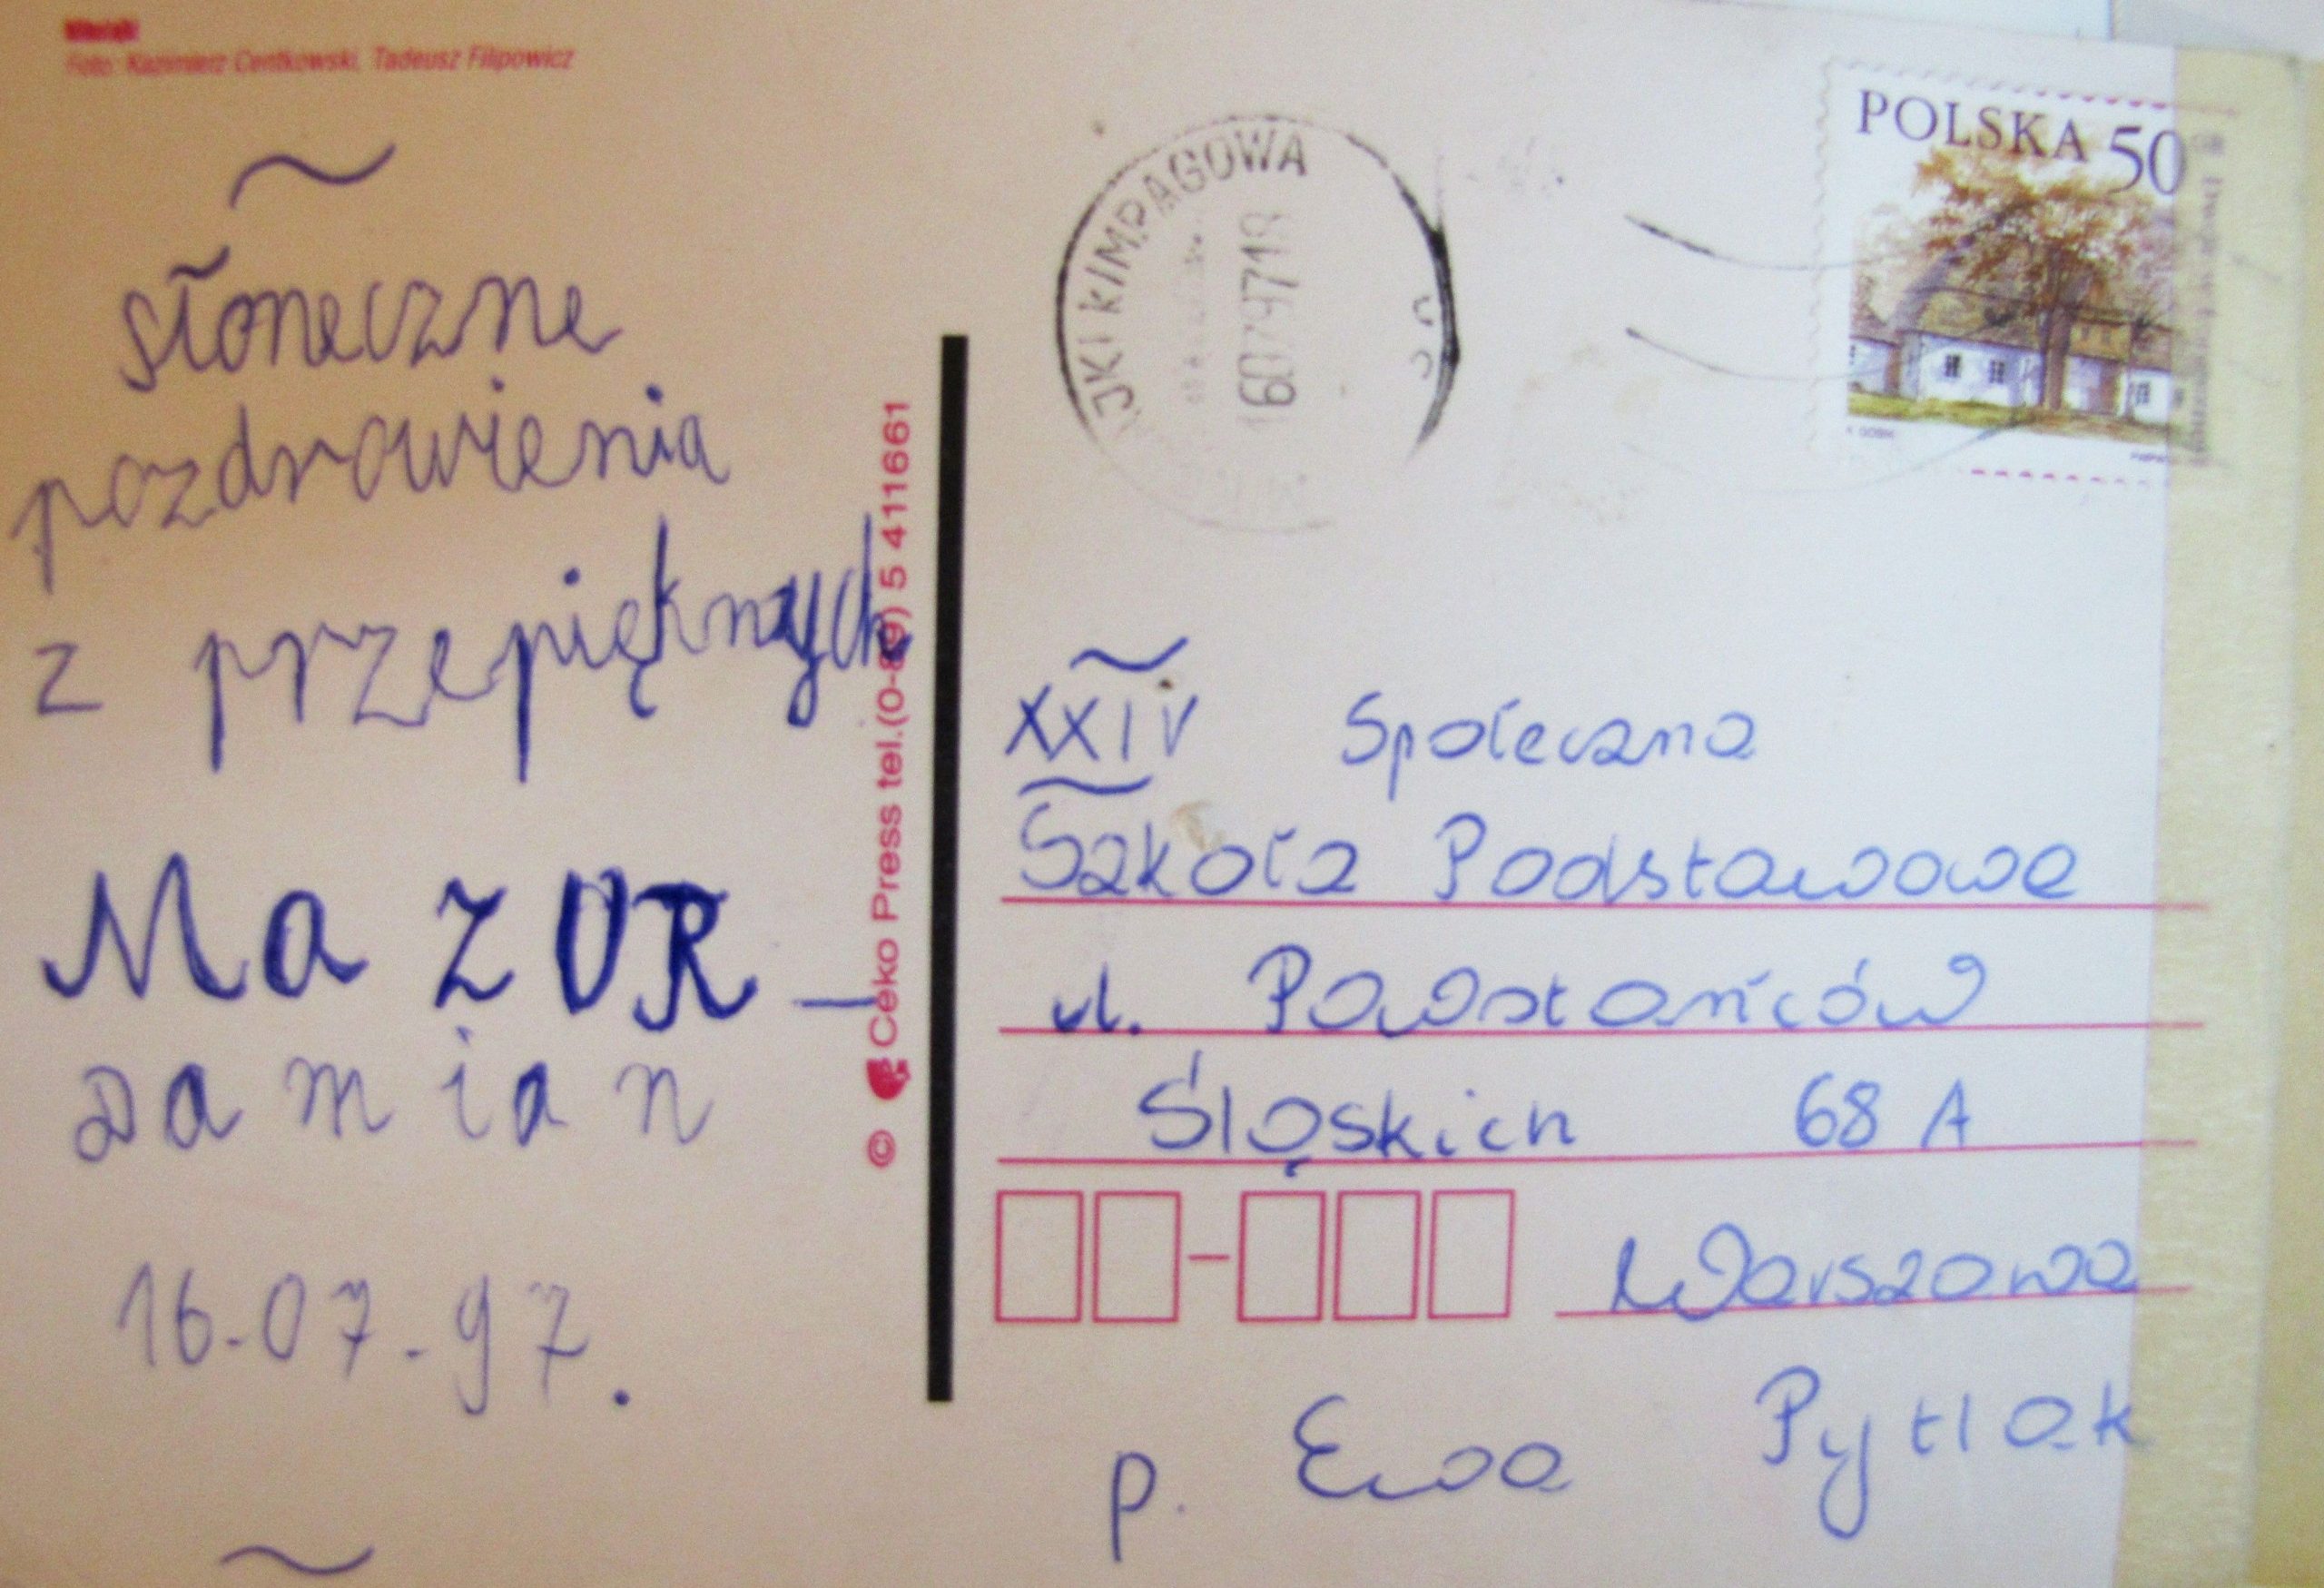 Mikołajki
Foto: Kazimierz Centkowski, Tadeusz Filipowicz
~
słoneczne
pozdrowienia
z przepięknych
MaZUR –
Damian
16.07.97.
~
© Ceko Press tel.(0-89) 5 411661
KIMPAGOWA
16079718
POLSKA 50
XXIV Społeczna
Szkoła Podstawowa
ul. Powstańców
Śląskich 68 A
Warszawa
p. Ewa Pytlak